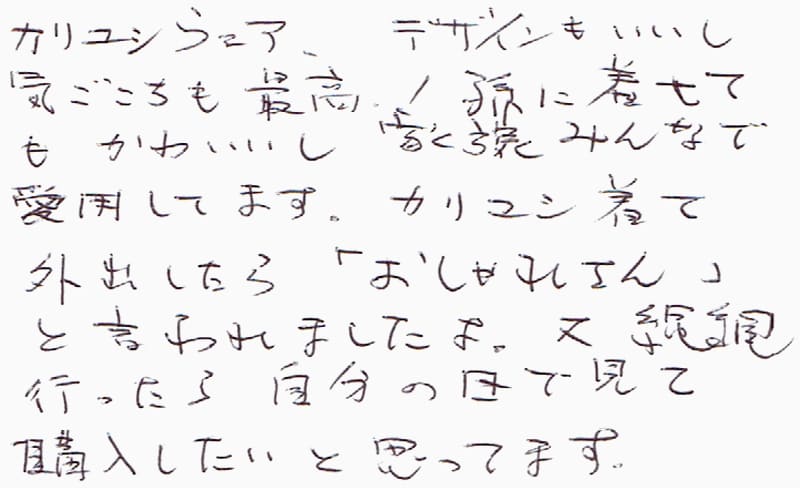 カリユシウェア、デザインもいいし
気ごこちも最高!孫に着せて
もかわいいし家族みんなで
愛用してます。カリユシ着て
外出したら「おしゃれさん」
と言われましたよ。又
行ったら自分の目で見て
購入したいと思ってます。